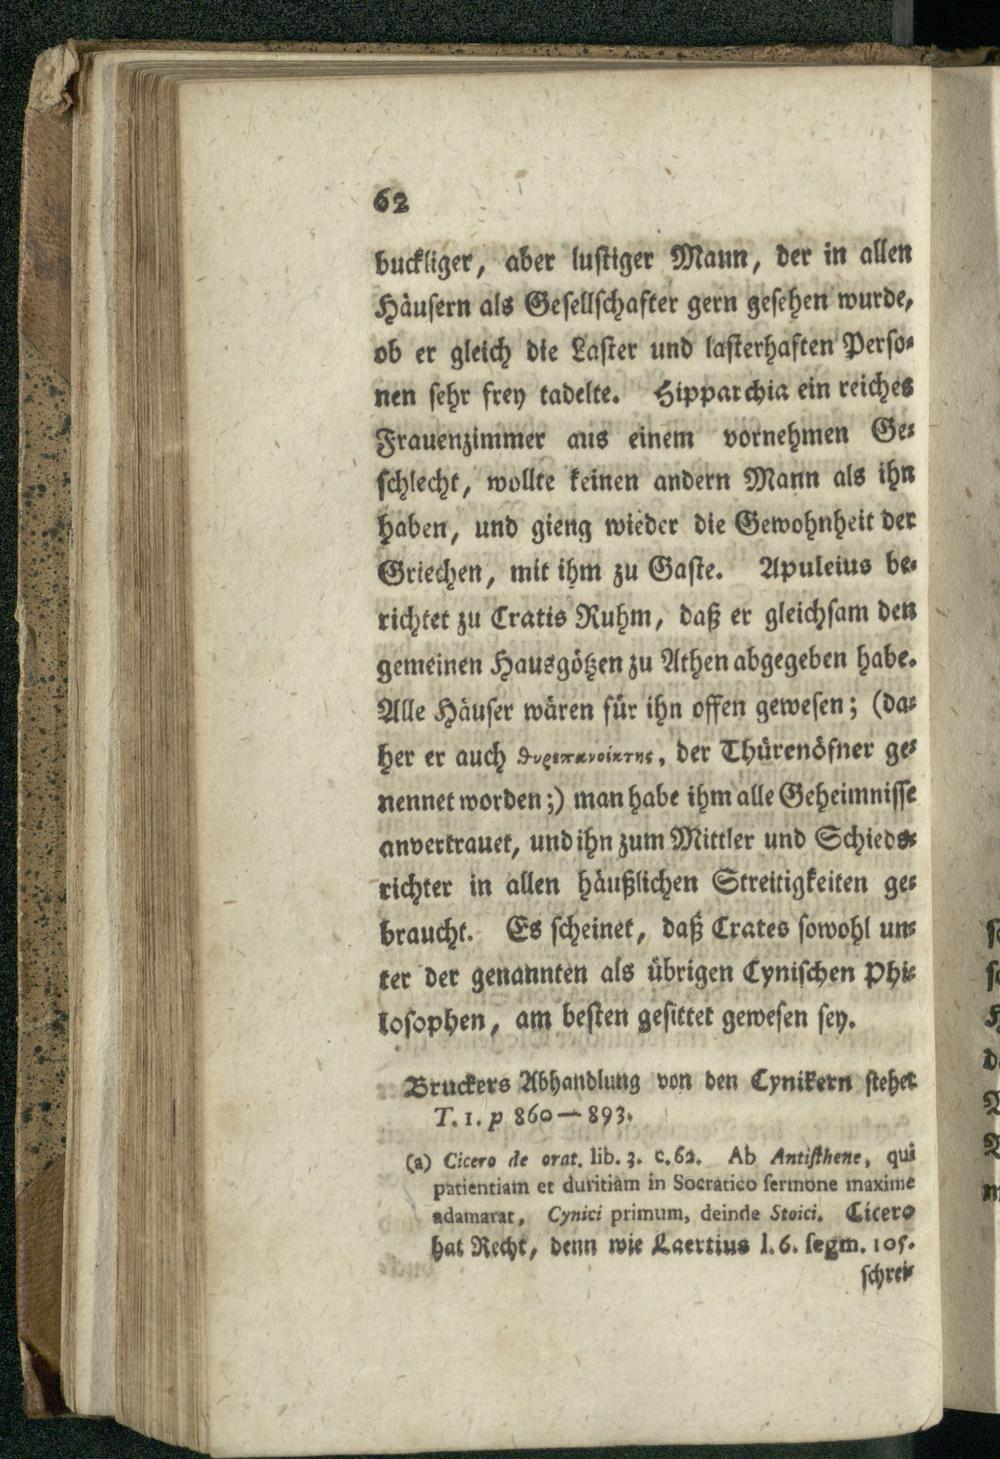 62
buckliger, aber lustiger Mann, der in allen
Häusern als Gesellschafter gern gesehen wurde,
ob er gleich die Laster und lasterhaften Perso-
nen sehr frey tadelte. Hipparchia ein reiches
Frauenzimmer aus einem vornehmen Ge-
schlecht, wollte keinen andern Mann als ihn
haben, und gieng wieder die Gewohnheit der
Griechen, mit ihm zu Gaste. Apuleius be-
richtet zu Cratis Ruhm, daß er gleichsam den
gemeinen Hausgötzen zu Athen abgegeben habe.
Alle Häuser wären für ihn offen gewesen; (da-
her er auch , der Thürenöfner ge-
nennet worden;) man habe ihm alle Geheimnisse
anvertrauet, und ihn zum Mittler und Schieds-
richter in allen häußlichen Streitigkeiten ge-
braucht. Es scheinet, daß Crates sowohl un-
ter der genannten als übrigen Cynischen Phi-
losophen, am besten gesittet gewesen sey.
Bruckers Abhandlung von den Cynikern stehet
T. 1. p 860—893.
(a) Cicero de orat. lib. 3. c. 62. Ab Antisthene, qui
patientiam et duritiam in Socratico sermone maxime
adamarat, Cynici primum, deinde Stoici. Cicero
hat Recht, denn wie Laertius l. 6. segm. 105.
schrei-